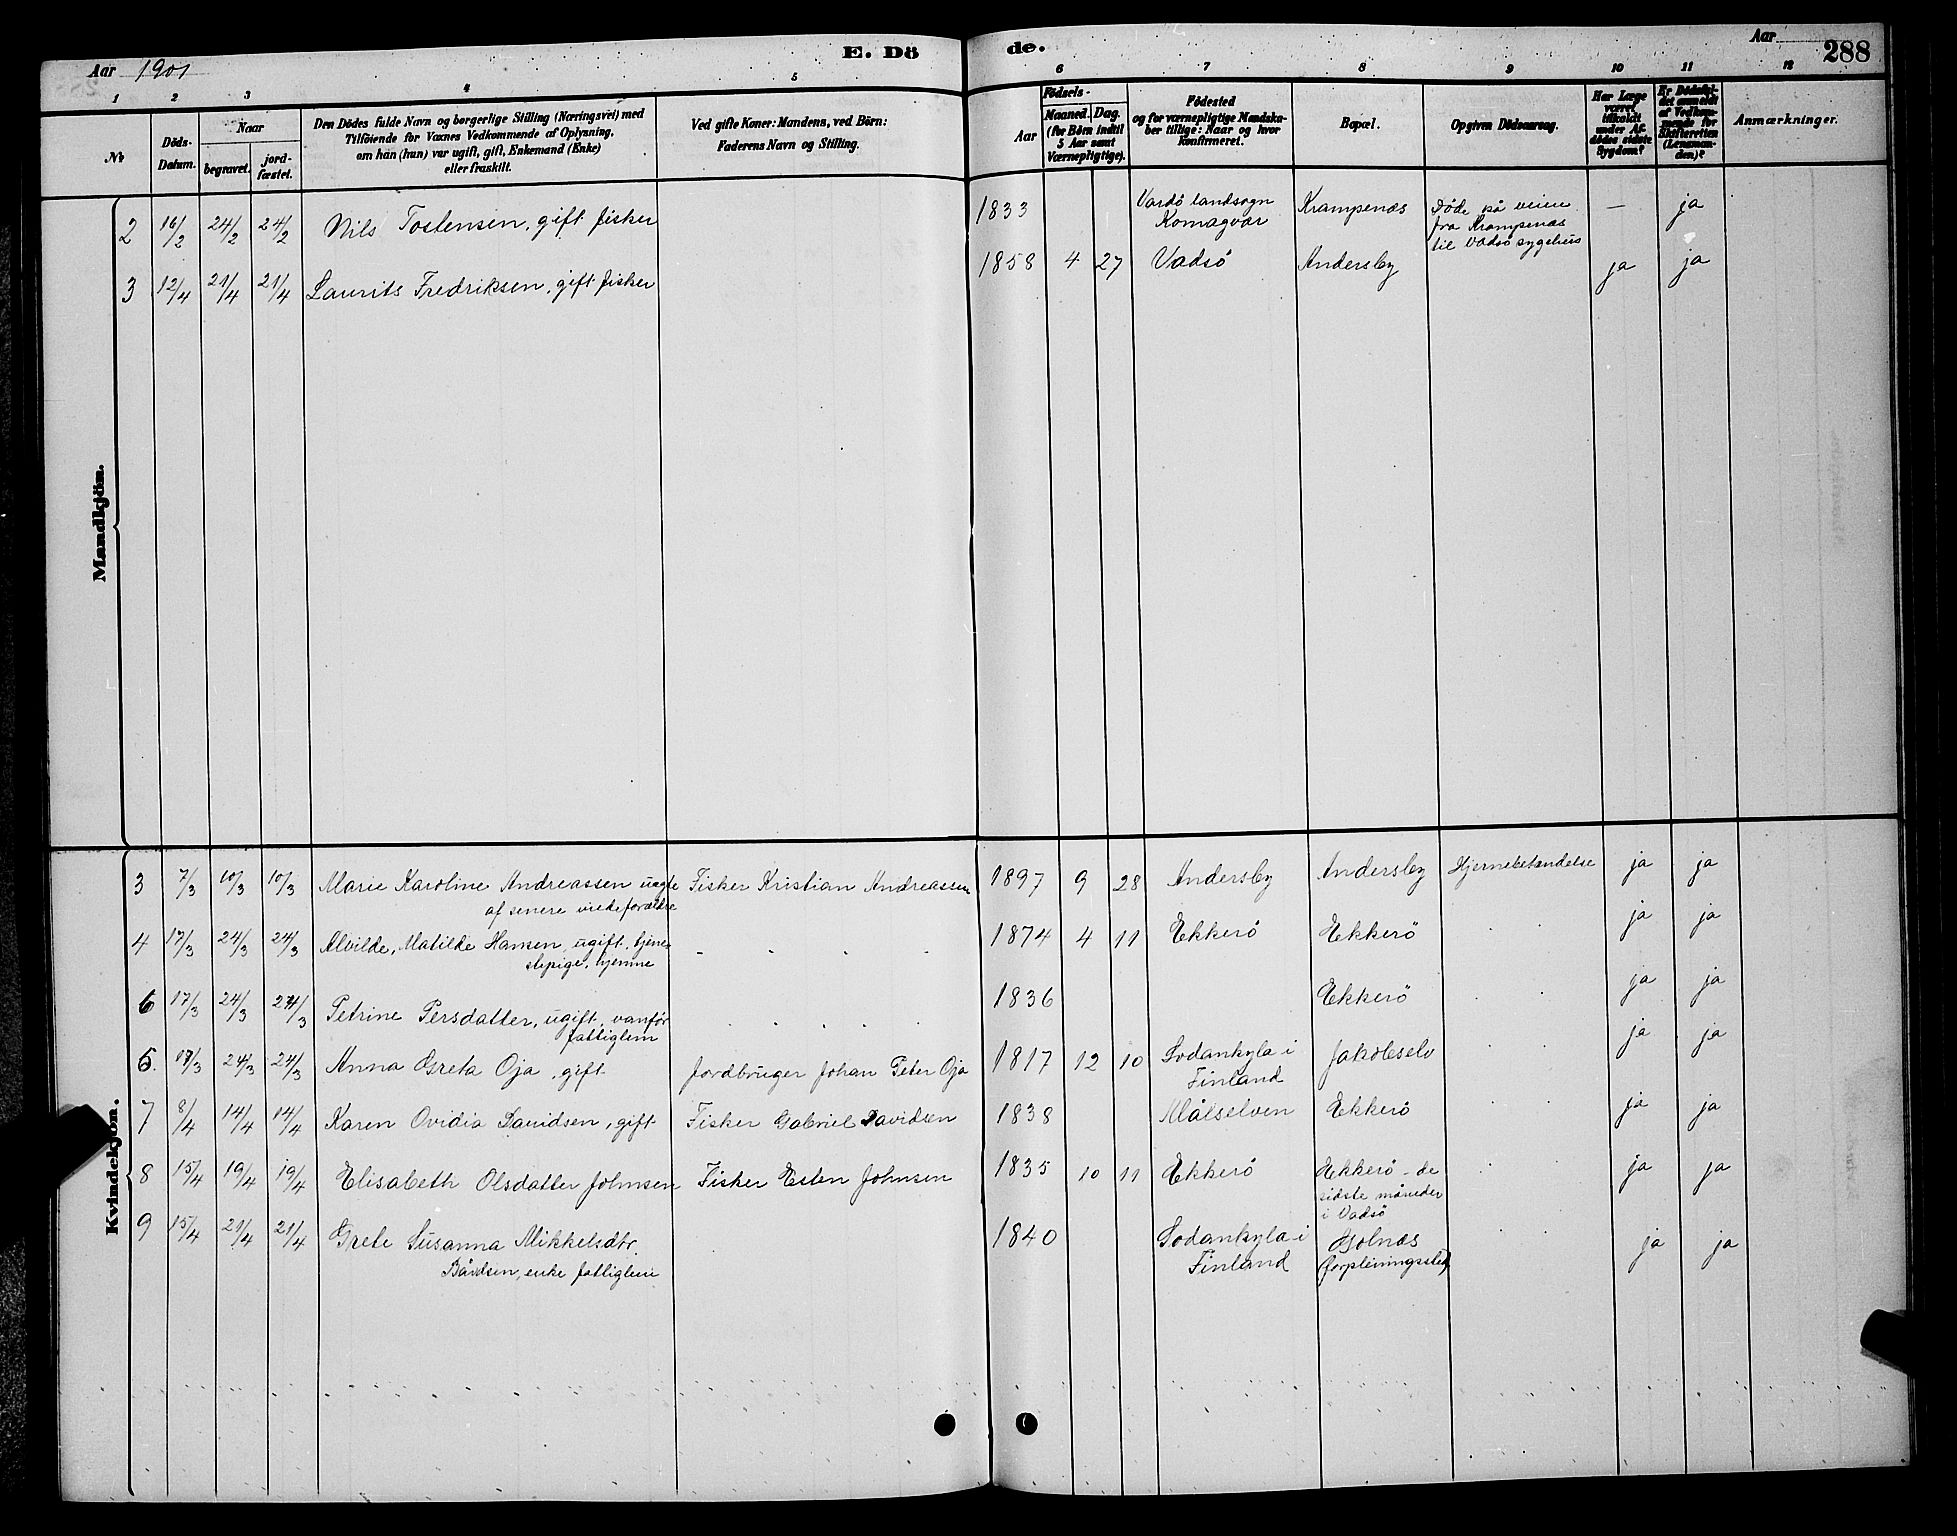 Aar 1901
E. Dö
de.
Aar
288
1 2 3 4 5 6 7 8 9 10 11 12
No
Döds-Datum.
Naar
begravet.
jord-fæstet.
Den Dödes fulde Navn og borgerlige Stilling (Næringsvei) med
Tilföiende for Voxnes Vedkommende af Oplysning,
om han (hun) var ugift, gift, Enkemand (Enke)
eller fraskilt.
Ved gifte Koner: Mandens, ved Börn:
Faderens Navn og Stilling.
Födsels-
Aar
Maaned.
Dag.
(for Börn indtil
5 Aar samt
Værnepligtige).
Födested
og for værnepligtige Mandska-
ber tillige: Naar og hvor
konfirmeret.
Bopæl.
Opgiven Dödsaarsag.
Har Læge
været
tilkaldt
under Af-
dödes sidste
Sygdom?
Er Dödsfal-
det anmeldt
af Vedkom-
mende for
Skifteretten
(Lensman-
den)?
Anmærkninger.
Mandkjön.
2 16/2 24/2 24/2 Nils Tostensen, gift fisker 1833 Vardö landsogn Krampenæs Döde på veien — ja
Komagvær fra Krampenæs
til Vadsö sygehus
3 12/4 21/4 21/4 Laurits Fredriksen, gift fisker 1858 4 27 Vadsö Andersby ja ja
Kvindekjön.
3 7/3 10/3 10/3 Marie Karoline Andreassen uægte Fisker Kristian Andreassen 1897 9 28 Andersby Andersby Hjernebetændelse ja ja
af senere viede forældre
4 17/3 24/3 24/3 Alvilde, Matilde Hansen, ugift, tjene- - 1874 4 11 Ekkerö Ekkerö ja ja
stepige, hjemme
6 17/3 24/3 24/3 Petrine Persdatter, ugift, vanför 1836 Ekkerö ja ja
fattiglem
5. 18/3 24/3 24/3 Anna Greta Oja, gift Jordbruger Johan Peter Oja 1817 12 10 Sodankyla i Jakobselv ja ja
Finland
7 8/4 14/4 14/4 Karen Ovidia Davidsen, gift Fisker Gabriel Davidsen 1838 Målselven Ekkerö ja ja
8 15/4 19/4 19/4 Elisabeth Olsdatter Johnsen Fisker Esten Johnsen 1835 10 11 Ekkerö Ekkerö - de ja ja
sidste måneder
i Vadsö
9 15/4 21/4 21/4 Grete Susanna Mikkelsdtr. 1840 Sodankyla i Golnæs ja ja
Bårdsen, enke fattiglem Finland (forpleiningssted)